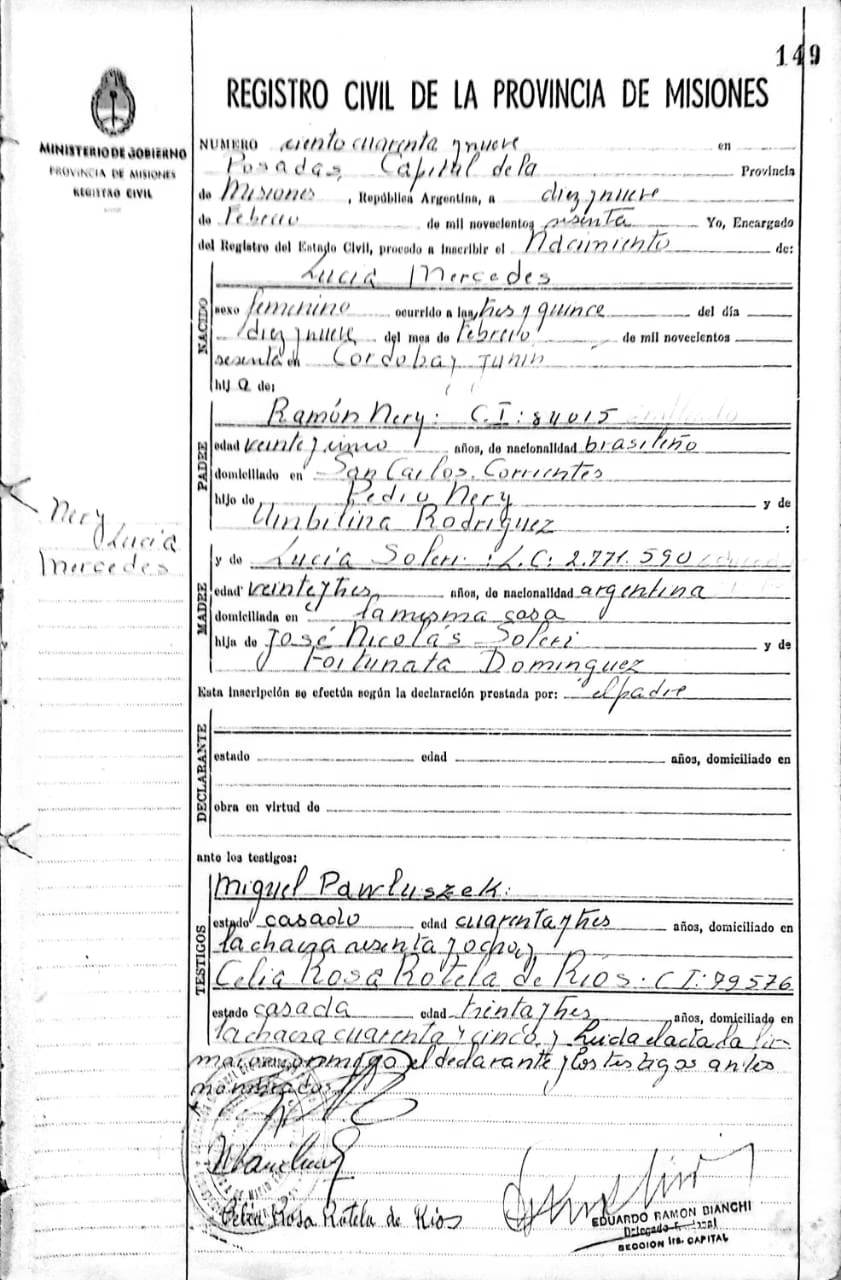 149
MINISTERIO DE GOBIERNO
PROVINCIA DE MISIONES
REGISTRO CIVIL
REGISTRO CIVIL DE LA PROVINCIA DE MISIONES
NUMERO ciento cuarenta y nueve en
Posadas, Capital de la Provincia
de Misiones, República Argentina, a diez y nueve
de Febrero de mil novecientos sesenta Yo, Encargado
del Registro del Estado Civil, procedo a inscribir el Nacimiento de:
NACIDO
Lucia Mercedes
sexo femenino ocurrido a las tres y quince del día
diez y nueve del mes de Febrero de mil novecientos
sesenta en Cordoba y Junin
hij a de:
PADRE
Ramón Nery: C.I: 84015
edad veinte y cinco años, de nacionalidad brasileño
domiciliado en San Carlos. Corrientes
hijo de Pedro Nery y de
Umbilina Rodriguez :
Nery
Lucia
Mercedes
MADRE
y de Lucia Soleri: L.C: 2.771.590
edad veinte y tres años, de nacionalidad argentina
domiciliada en la misma casa
hija de José Nicolás Soleri y de
Fortunata Dominguez
Esta inscripción se efectúa según la declaración prestada por: el padre
DECLARANTE
estado edad años, domiciliado en
obra en virtud de
ante los testigos:
TESTIGOS
Miguel Pawluszek:
estado casado edad cuarenta y tres años, domiciliado en
la chacra sesenta y ocho y
Celia Rosa Rotela de Rios. C I: 79576
estado casada edad treinta y tres años, domiciliado en
la chacra cuarenta y cinco y Leida el acta la fir-
maron conmigo el declarante y los testigos antes
nombrados
Celia Rosa Rotela de Rios
EDUARDO RAMON BIANCHI
SECCION 1ra. CAPITAL